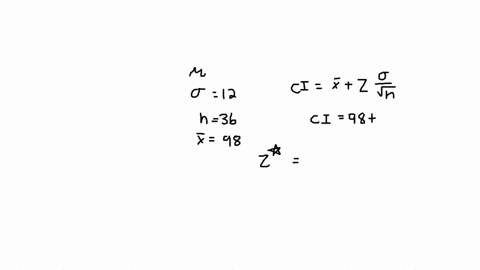 μ
σ = 12
n = 36
x̄ = 98
CI = x̄ + Z σ/√n
CI = 98 +
Z* =